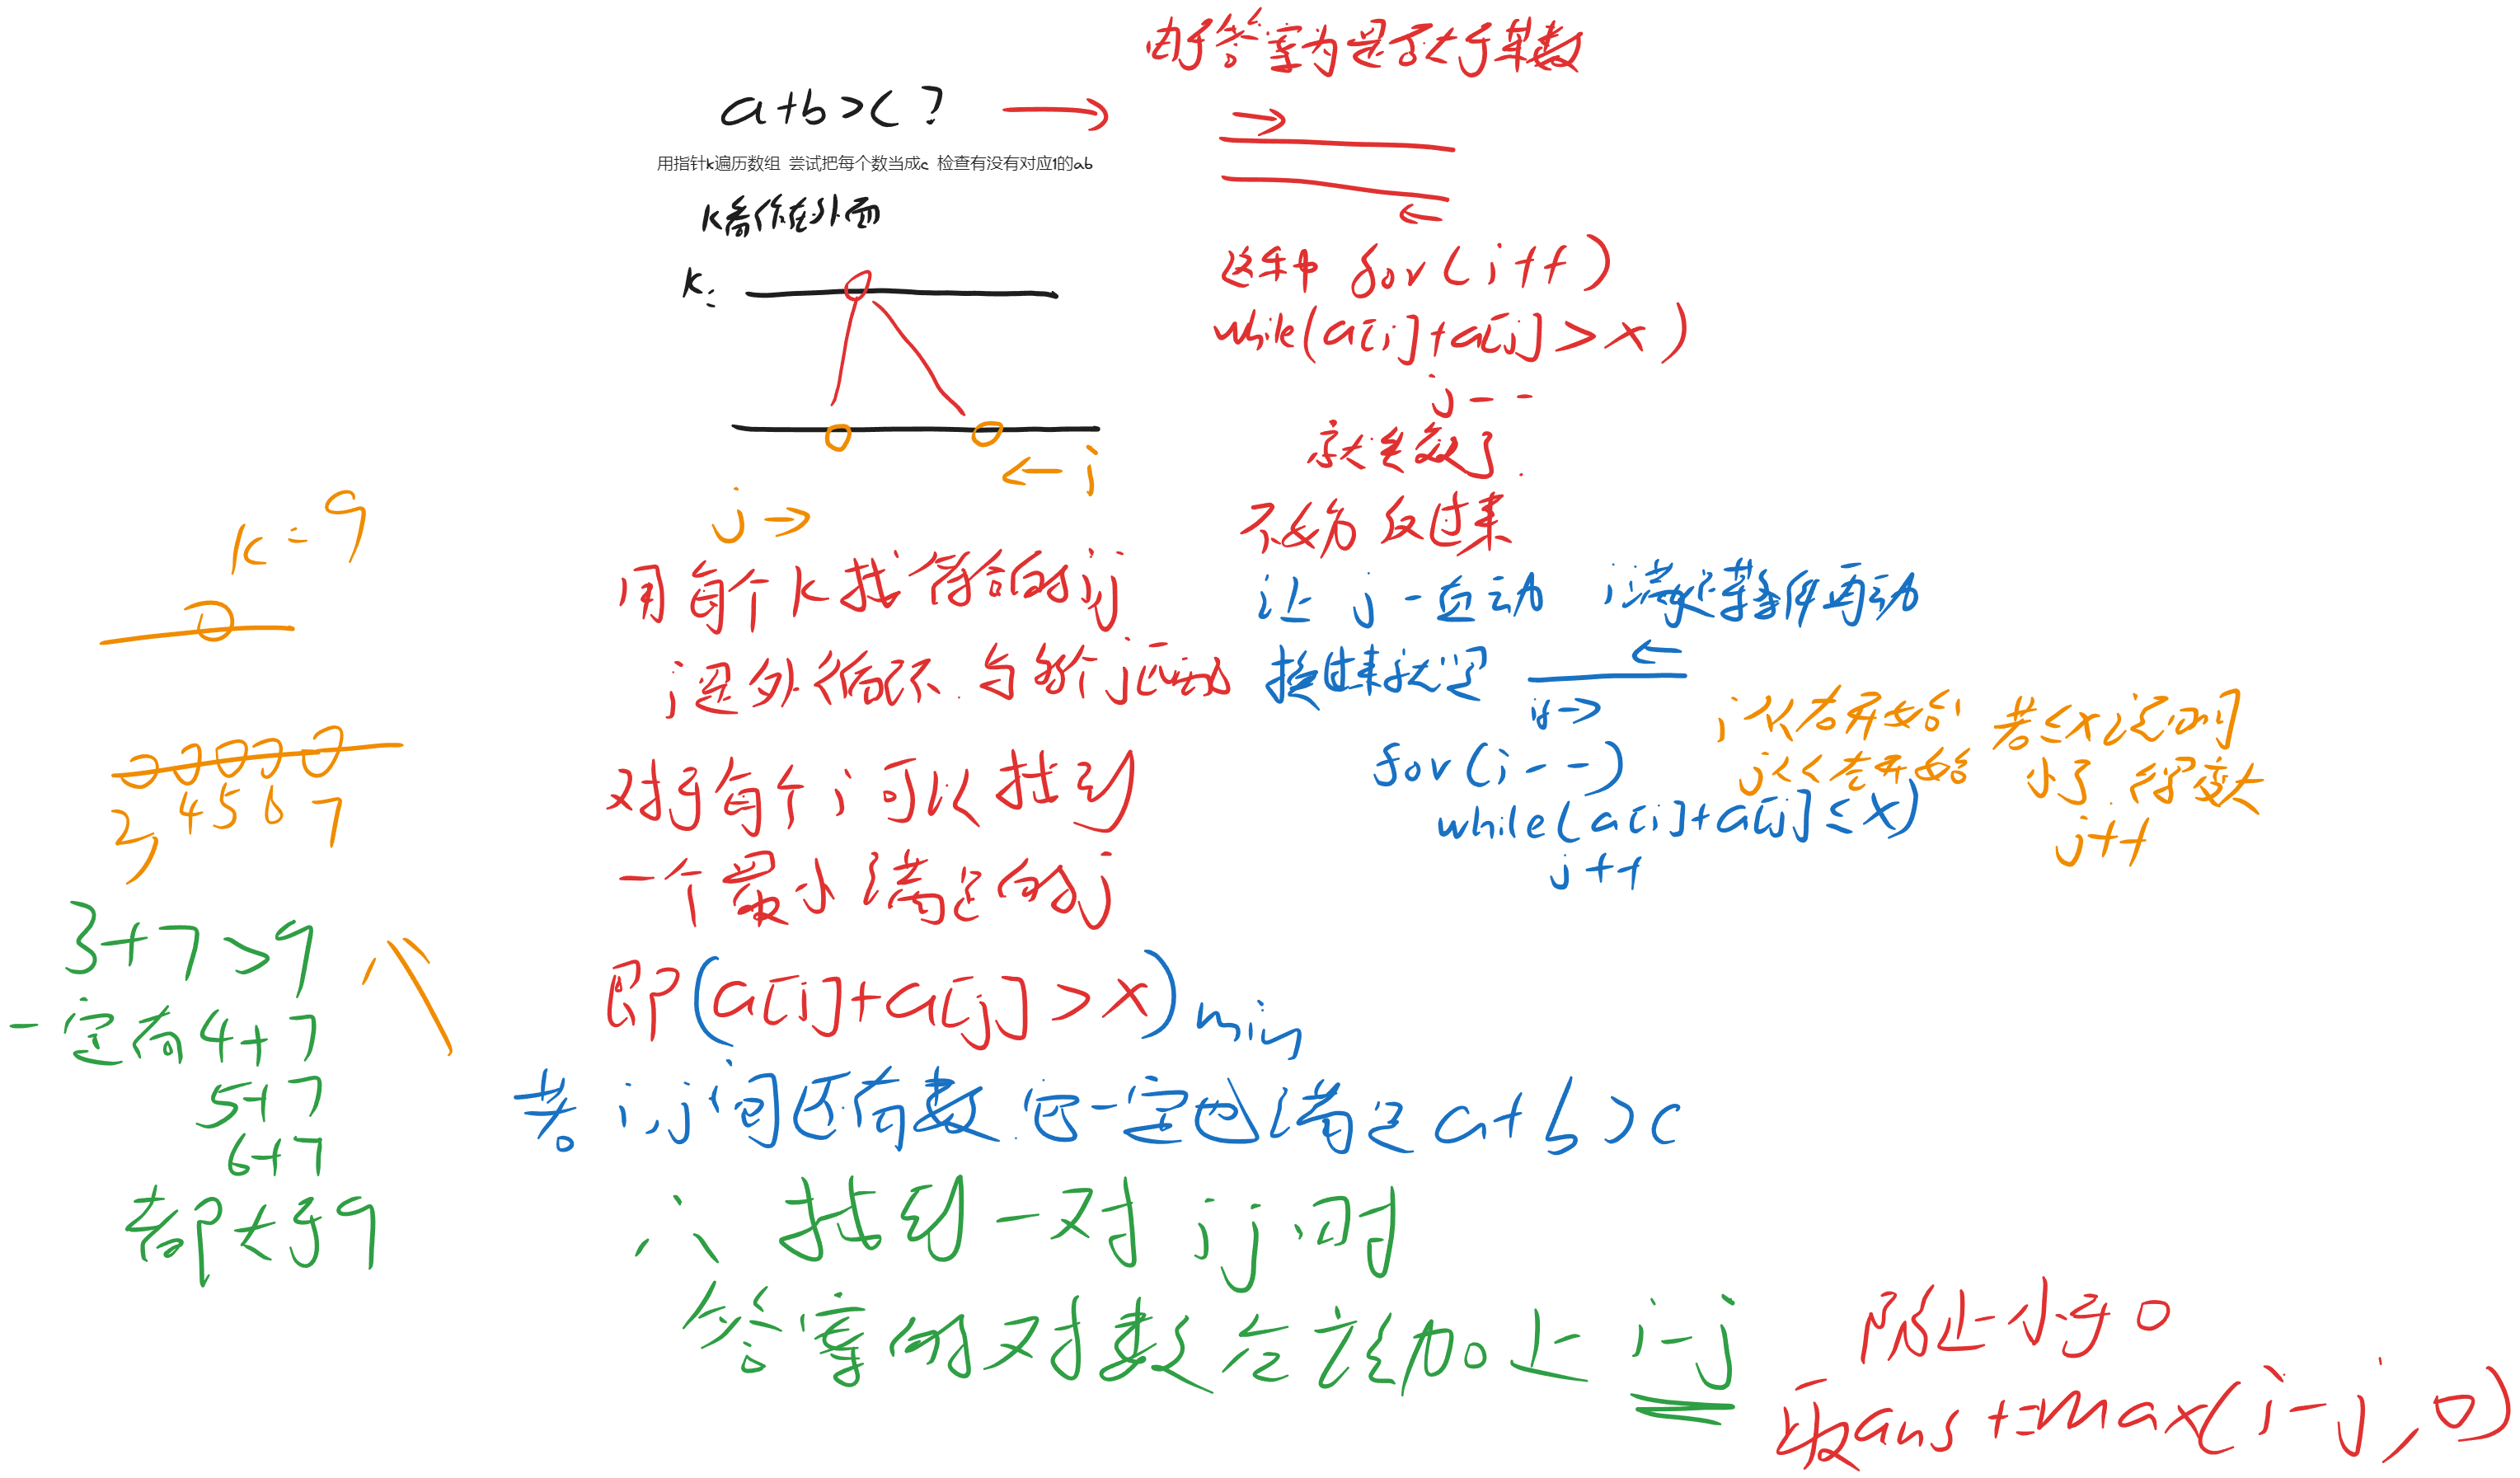 由于答案为是否大于某数
a+b>c?
用指针k遍历数组 尝试把每个数当成c 检查有没有对应1的ab
k操作在外面
k:
j→
←i
用每个k找符合的ij
i是外循环.
对于每个i可以找到
一个最小满足的j
即(a[i]+a[j]>x)min
若i,j间还有数.它一定也满足a+b>c
∴找到一对ij时
答案的对数应该加上i-j
防止小于0
取ans+=max(i-j,0)
for(i++)
while(a[i]+a[j]>x)
j--
不妨反过来
让j一直动 i
换过来就是
ij→
←
for(i--)
while(a[i]+a[j]≤x)
j++
i从右开始
j从左开始
若≤x说明
小了 得变大
j++
k=9
3 4 5 6 7
3+7>9
一定有4+7
5+7
6+7
都大于9